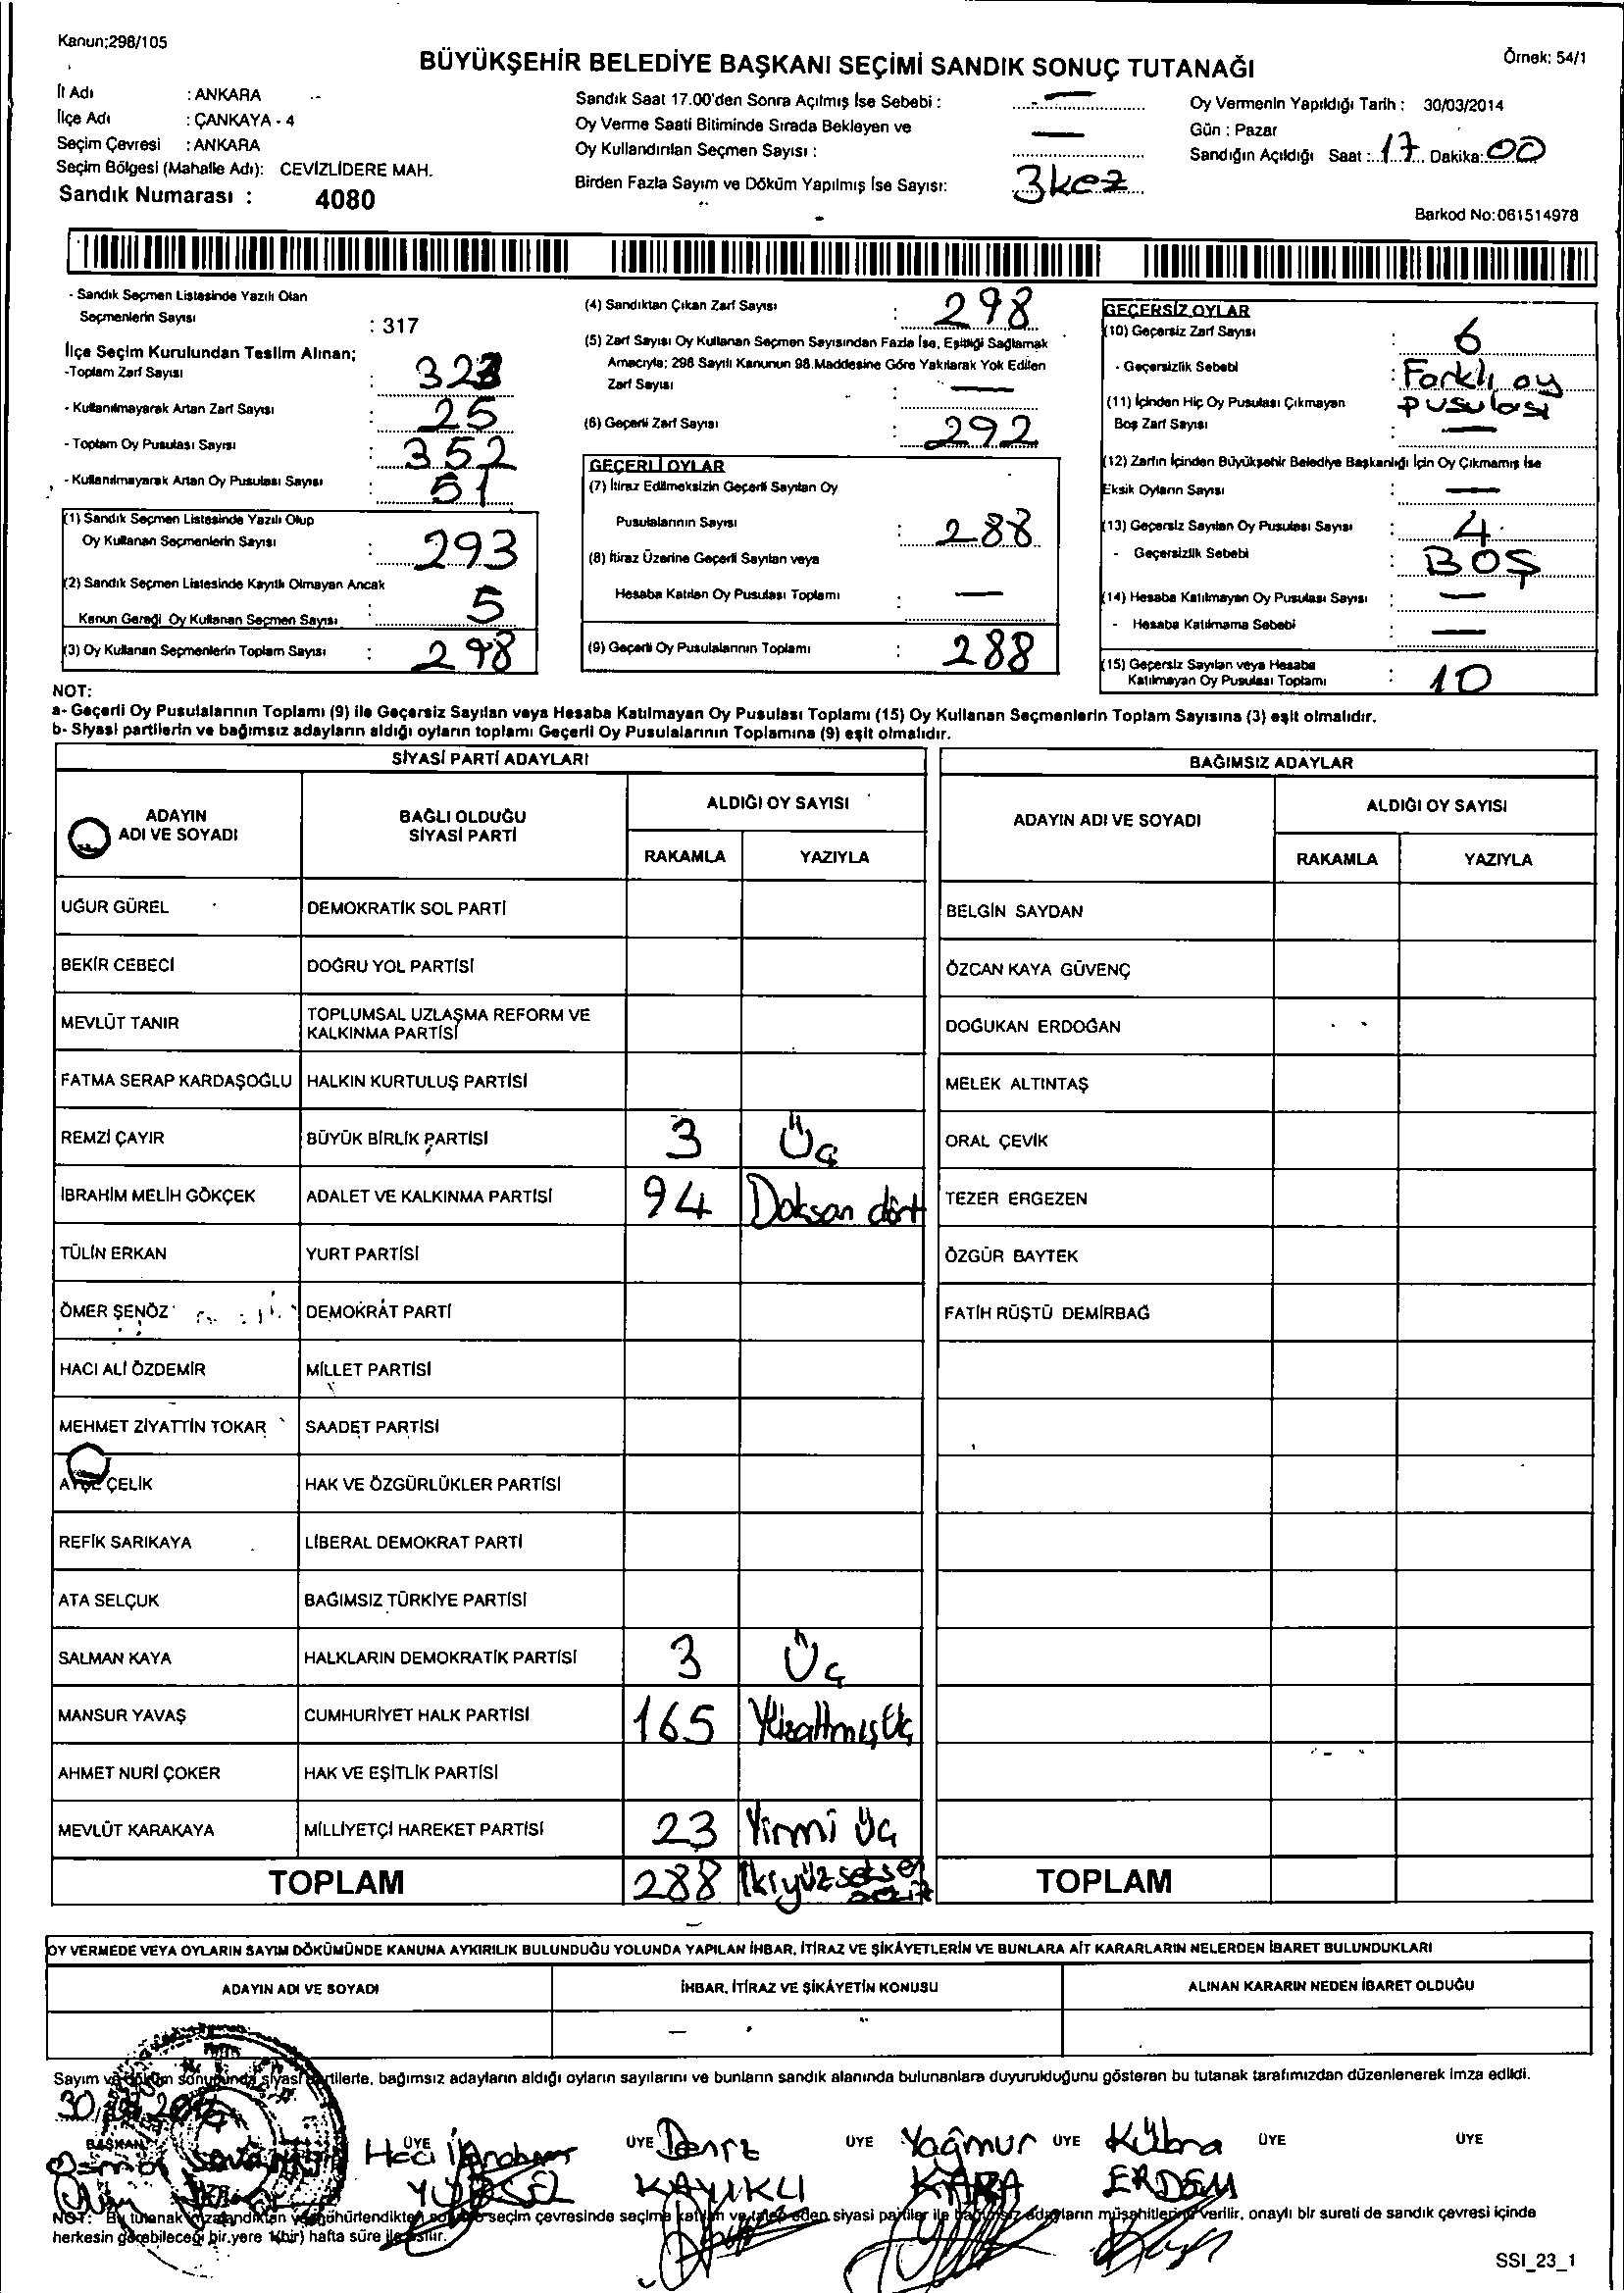 Kanun;298/105
BÜYÜKŞEHİR BELEDİYE BAŞKANI SEÇİMİ SANDIK SONUÇ TUTANAĞI
Örnek: 54/1
İl Adı : ANKARA
İlçe Adı : ÇANKAYA - 4
Seçim Çevresi : ANKARA
Seçim Bölgesi (Mahalle Adı): CEVİZLİDERE MAH.
Sandık Numarası : 4080
Sandık Saat 17.00'den Sonra Açılmış İse Sebebi : —
Oy Verme Saati Bitiminde Sırada Bekleyen ve
Oy Kullandırılan Seçmen Sayısı : —
Birden Fazla Sayım ve Döküm Yapılmış İse Sayısı: 3 kez
Oy Vermenin Yapıldığı Tarih : 30/03/2014
Gün : Pazar
Sandığın Açıldığı Saat : 17 Dakika: 00
Barkod No:061514978
- Sandık Seçmen Listesinde Yazılı Olan
Seçmenlerin Sayısı : 317
İlçe Seçim Kurulundan Teslim Alınan;
-Toplam Zarf Sayısı : 323
- Kullanılmayarak Artan Zarf Sayısı : 25
- Toplam Oy Pusulası Sayısı : 352
- Kullanılmayarak Artan Oy Pusulası Sayısı : 51
(1) Sandık Seçmen Listesinde Yazılı Olup
Oy Kullanan Seçmenlerin Sayısı : 293
(2) Sandık Seçmen Listesinde Kayıtlı Olmayan Ancak
Kanun Gereği Oy Kullanan Seçmen Sayısı : 5
(3) Oy Kullanan Seçmenlerin Toplam Sayısı : 298
(4) Sandıktan Çıkan Zarf Sayısı : 298
(5) Zarf Sayısı Oy Kullanan Seçmen Sayısından Fazla İse, Eşitliği Sağlamak
Amacıyla; 298 Sayılı Kanunun 98.Maddesine Göre Yakılarak Yok Edilen
Zarf Sayısı : —
(6) Geçerli Zarf Sayısı : 292
GEÇERLİ OYLAR
(7) İtiraz Edilmeksizin Geçerli Sayılan Oy
Pusulalarının Sayısı : 288
(8) İtiraz Üzerine Geçerli Sayılan veya
Hesaba Katılan Oy Pusulası Toplamı : —
(9) Geçerli Oy Pusulalarının Toplamı : 288
GEÇERSİZ OYLAR
(10) Geçersiz Zarf Sayısı : 6
- Geçersizlik Sebebi : Farklı oy
pusulası
(11) İçinden Hiç Oy Pusulası Çıkmayan
Boş Zarf Sayısı : —
(12) Zarfın İçinden Büyükşehir Belediye Başkanlığı İçin Oy Çıkmamış İse
Eksik Oyların Sayısı : —
(13) Geçersiz Sayılan Oy Pusulası Sayısı : 4
- Geçersizlik Sebebi : BOŞ
(14) Hesaba Katılmayan Oy Pusulası Sayısı : —
- Hesaba Katılmama Sebebi : —
(15) Geçersiz Sayılan veya Hesaba
Katılmayan Oy Pusulası Toplamı : 10
NOT:
a- Geçerli Oy Pusulalarının Toplamı (9) ile Geçersiz Sayılan veya Hesaba Katılmayan Oy Pusulası Toplamı (15) Oy Kullanan Seçmenlerin Toplam Sayısına (3) eşit olmalıdır.
b- Siyasi partilerin ve bağımsız adayların aldığı oyların toplamı Geçerli Oy Pusulalarının Toplamına (9) eşit olmalıdır.
SİYASİ PARTİ ADAYLARI
ADAYIN
ADI VE SOYADI
BAĞLI OLDUĞU
SİYASİ PARTİ
ALDIĞI OY SAYISI
RAKAMLA YAZIYLA
UĞUR GÜREL DEMOKRATİK SOL PARTİ
BEKİR CEBECİ DOĞRU YOL PARTİSİ
MEVLÜT TANIR TOPLUMSAL UZLAŞMA REFORM VE
KALKINMA PARTİSİ
FATMA SERAP KARDAŞOĞLU HALKIN KURTULUŞ PARTİSİ
REMZİ ÇAYIR BÜYÜK BİRLİK PARTİSİ 3 Üç
İBRAHİM MELİH GÖKÇEK ADALET VE KALKINMA PARTİSİ 94 Doksan dört
TÜLİN ERKAN YURT PARTİSİ
ÖMER ŞENÖZ DEMOKRAT PARTİ
HACI ALİ ÖZDEMİR MİLLET PARTİSİ
MEHMET ZİYATTİN TOKAR SAADET PARTİSİ
AYŞE ÇELİK HAK VE ÖZGÜRLÜKLER PARTİSİ
REFİK SARIKAYA LİBERAL DEMOKRAT PARTİ
ATA SELÇUK BAĞIMSIZ TÜRKİYE PARTİSİ
SALMAN KAYA HALKLARIN DEMOKRATİK PARTİSİ 3 Üç
MANSUR YAVAŞ CUMHURİYET HALK PARTİSİ 165 Yüzaltmış Üç
AHMET NURİ ÇOKER HAK VE EŞİTLİK PARTİSİ
MEVLÜT KARAKAYA MİLLİYETÇİ HAREKET PARTİSİ 23 Yirmi Üç
TOPLAM 288 İkiyüzseksen
sekiz
BAĞIMSIZ ADAYLAR
ADAYIN ADI VE SOYADI
ALDIĞI OY SAYISI
RAKAMLA YAZIYLA
BELGİN SAYDAN
ÖZCAN KAYA GÜVENÇ
DOĞUKAN ERDOĞAN
MELEK ALTINTAŞ
ORAL ÇEVİK
TEZER ERGEZEN
ÖZGÜR BAYTEK
FATİH RÜŞTÜ DEMİRBAĞ
TOPLAM
OY VERMEDE VEYA OYLARIN SAYIM DÖKÜMÜNDE KANUNA AYKIRILIK BULUNDUĞU YOLUNDA YAPILAN İHBAR, İTİRAZ VE ŞİKÂYETLERİN VE BUNLARA AİT KARARLARIN NELERDEN İBARET BULUNDUKLARI
ADAYIN ADI VE SOYADI İHBAR, İTİRAZ VE ŞİKÂYETİN KONUSU ALINAN KARARIN NEDEN İBARET OLDUĞU
Sayım ve döküm sonucunda siyasi partilerle, bağımsız adayların aldığı oyların sayılarını ve bunların sandık alanında bulunanlara duyurulduğunu gösteren bu tutanak tarafımızdan düzenlenerek imza edildi.
BAŞKAN ÜYE ÜYE ÜYE ÜYE ÜYE ÜYE
Hacı İbrahim Deniz Yağmur Kübra
YÜKSEL KAYIKLI KARA ERDEM
NOT: Bu tutanak imzalandıktan ve mühürlendikten sonra o seçim çevresinde seçime katılan ve talep eden siyasi partiler ile bağımsız adayların müşahitlerine verilir, onaylı bir sureti de sandık çevresi içinde
herkesin görebileceği bir yere 1(bir) hafta süre ile asılır.
SSI_23_1